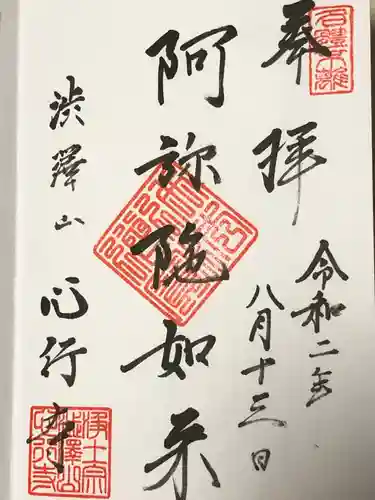 奉拝
令和二年
八月十三日
阿弥陀如来
渋澤山
心行寺
浄土宗
渋澤山
心行寺